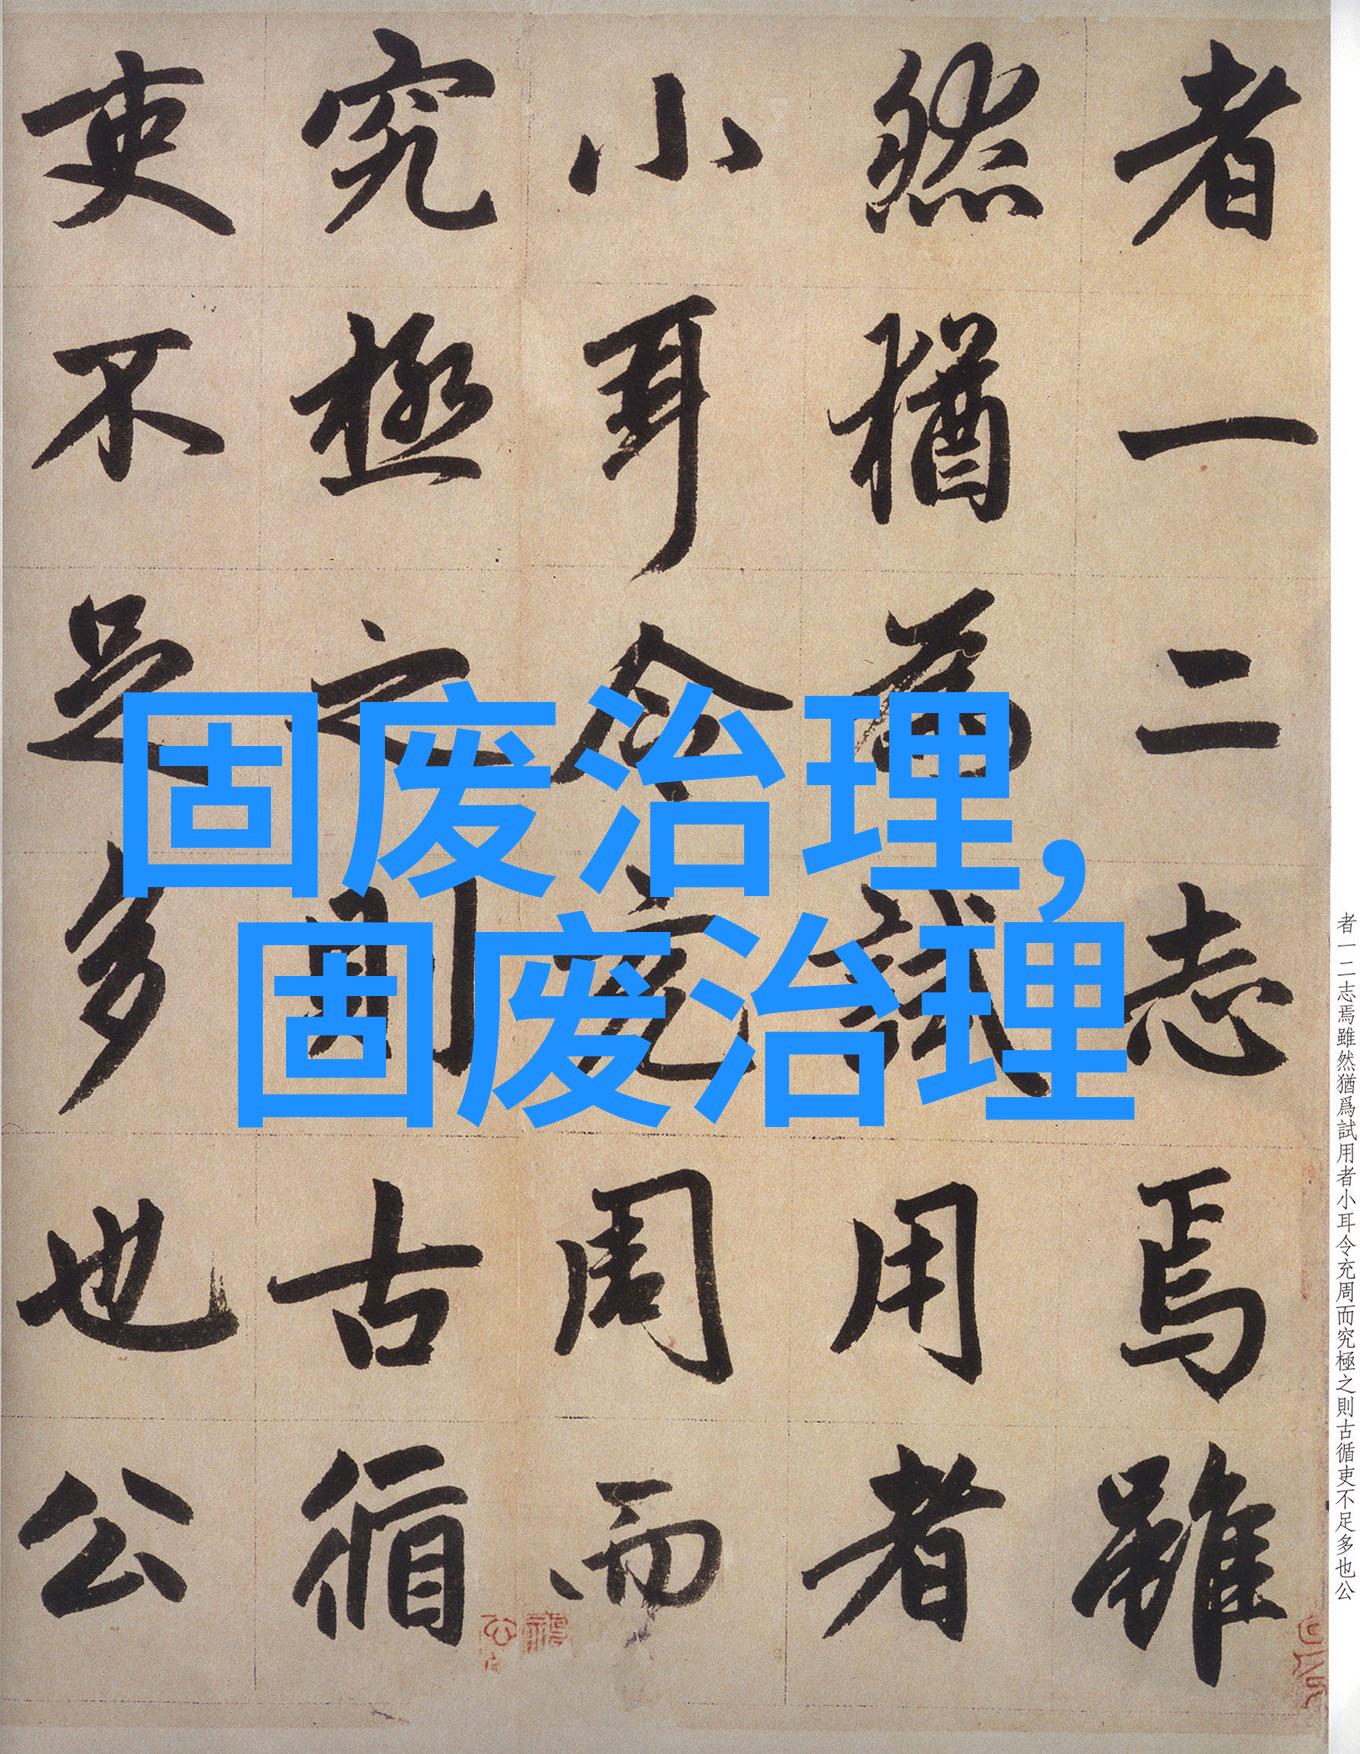 者一二志焉雖
然猶為試用者
小耳令充周而
究極之則古循
吏不足多也公
固废治理，
固废治理
者一二志焉雖然猶爲試用者小耳令充周而究極之則古循吏不足多也公